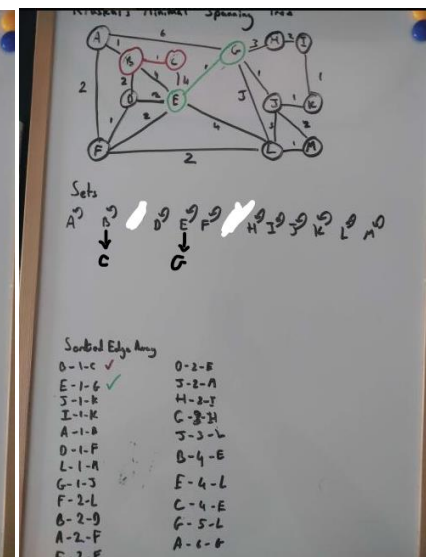 Kruskal's Minimal Spanning Tree
A 6 G 3 H 2 I
1 B 1 C
2 2 4 4 1 1
D 2 E J 1 K
1 2 4 3 2
F 2 L 1 M
Sets
A B D E F H I J K L M
C G
Sorted Edge Array
B-1-C ✓
E-1-G ✓
J-1-K
I-1-K
A-1-B
D-1-F
L-1-M
G-1-J
F-2-L
B-2-D
A-2-F
F-2-E
D-2-E
J-2-M
H-2-I
G-3-H
J-3-L
B-4-E
E-4-L
C-4-E
G-5-L
A-6-G